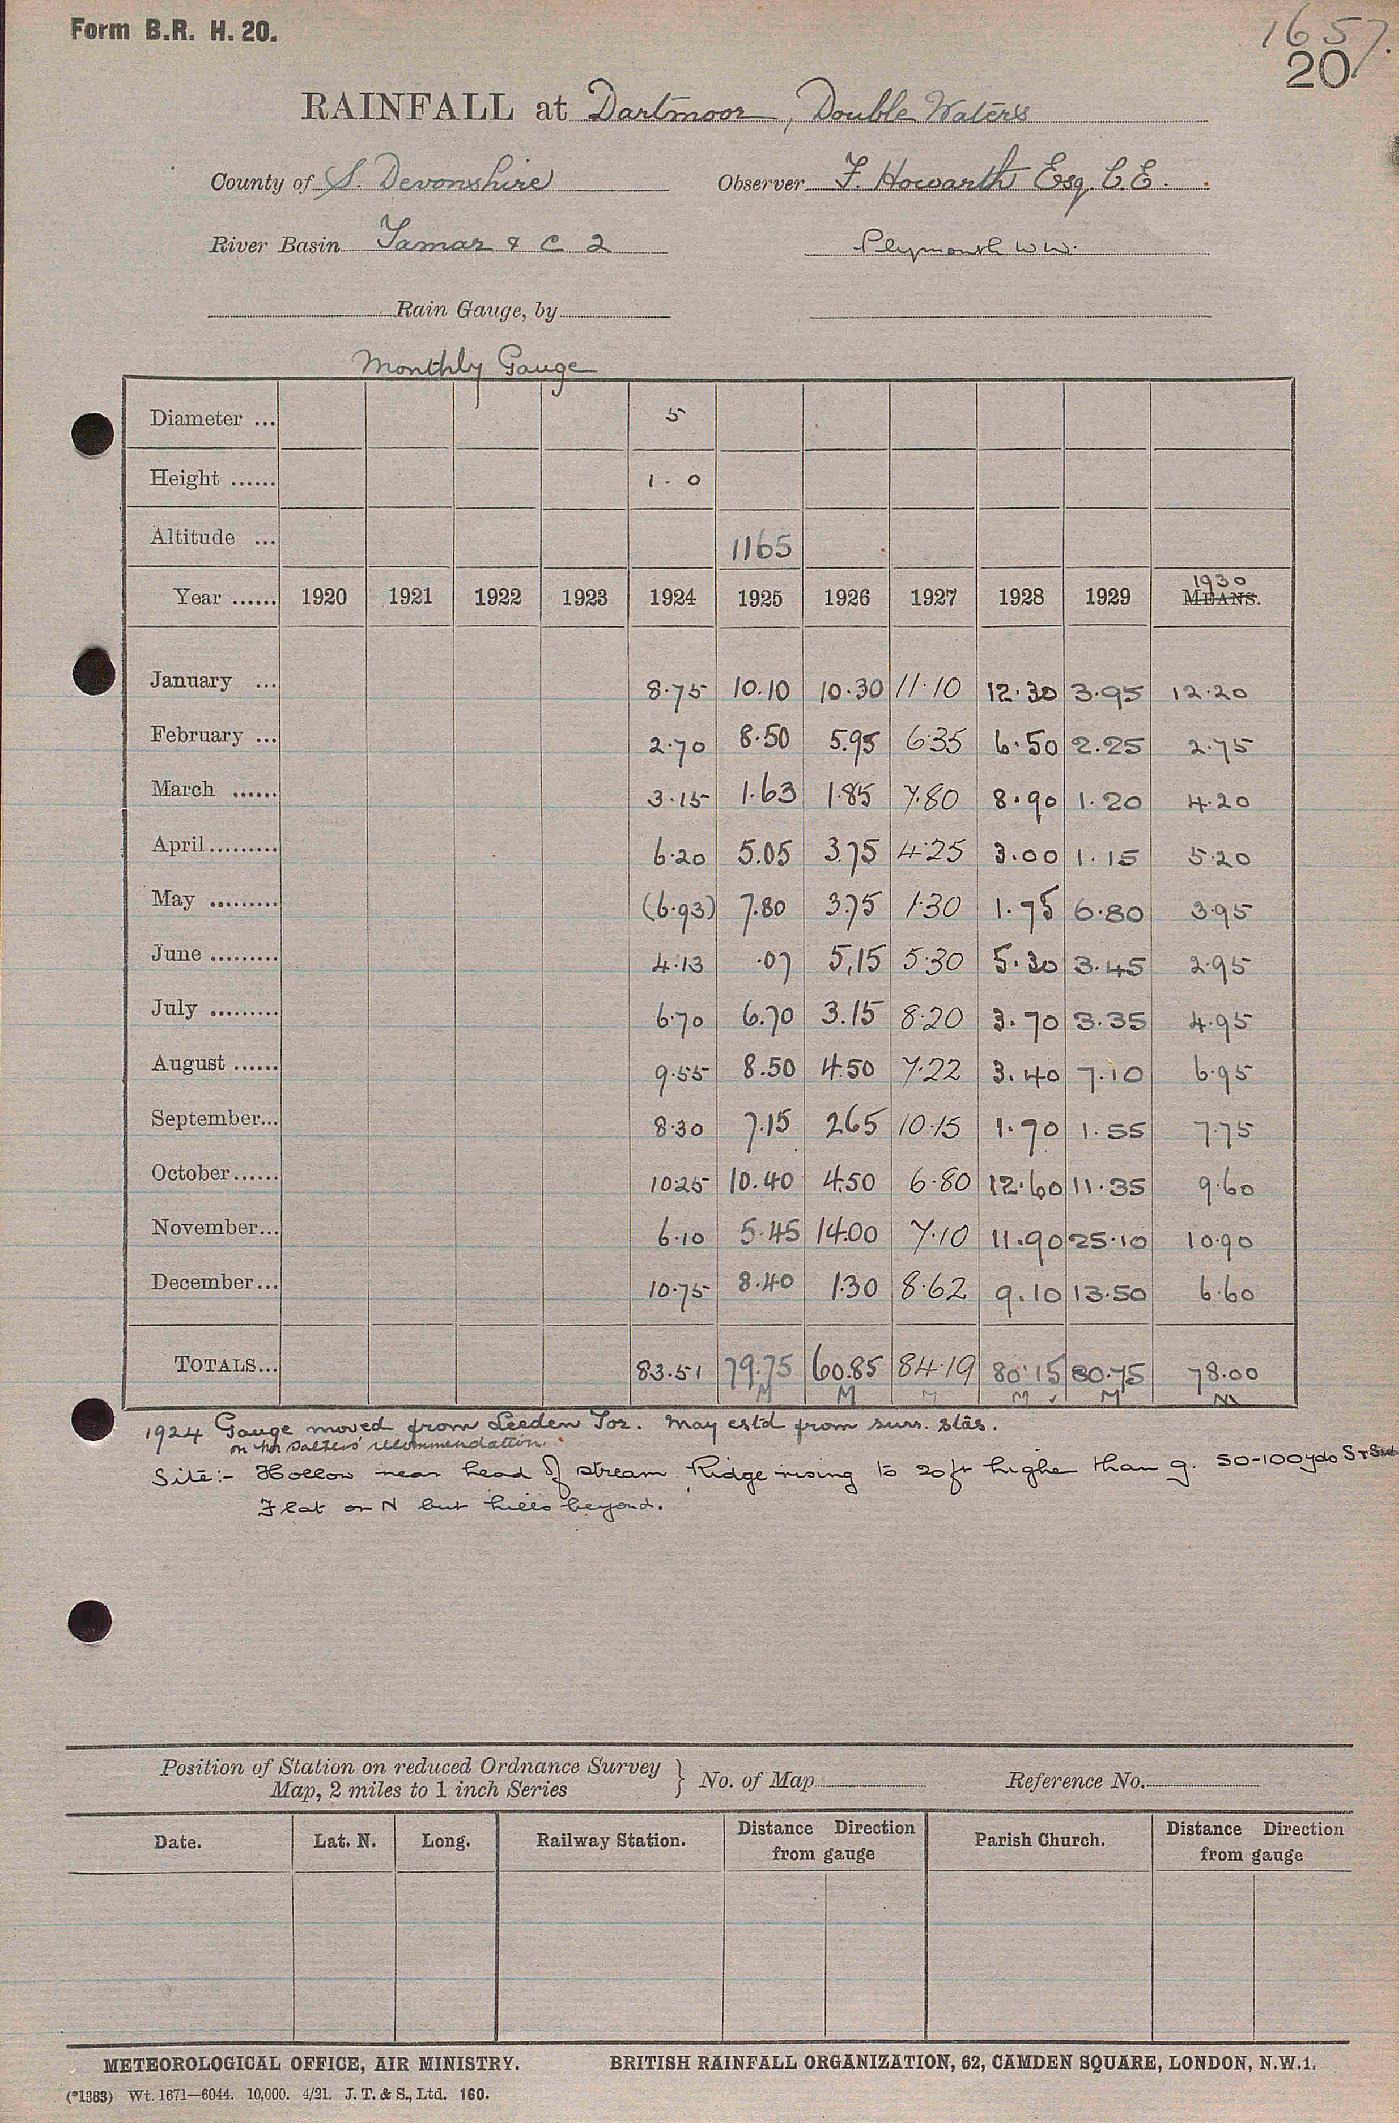 Form B.R. H. 20.
1657.
20
RAINFALL at Dartmoor, Double Waters
County of S. Devonshire Observer F. Howarth Esq. C.E.
River Basin Tamar & c 2 Plymouth W.W.
Rain Gauge, by
Monthly Gauge
Diameter ... 5
Height ...... 1 . 0
Altitude ... 1165
1930
Year ...... 1920 1921 1922 1923 1924 1925 1926 1927 1928 1929 MEANS.
January ... 8.75 10.10 10.30 11.10 12.30 3.95 12.20
February ... 2.70 8.50 5.95 6.35 6.50 2.25 2.75
March ...... 3.15 1.63 1.85 7.80 8.90 1.20 4.20
April ......... 6.20 5.05 3.75 4.25 3.00 1.15 5.20
May ......... (6.93) 7.80 3.75 1.30 1.75 6.80 3.95
June ......... 4.13 .07 5.15 5.30 5.30 3.45 2.95
July ......... 6.70 6.70 3.15 8.20 3.70 3.35 4.95
August ...... 9.55 8.50 4.50 7.22 3.40 7.10 6.95
September... 8.30 7.15 2.65 10.15 1.70 1.55 7.75
October ...... 10.25 10.40 4.50 6.80 12.60 11.35 9.60
November... 6.10 5.45 14.00 7.10 11.90 25.10 10.90
December ... 10.75 8.40 1.30 8.62 9.10 13.50 6.60
TOTALS... 83.51 79.75 60.85 84.19 80.15 80.75 78.00
M M M M M M
1924 Gauge moved from Leeden Tor. May estd from surr. stas.
on Mr Salter's recommendation.
Site:- Hollow near head of stream Ridge rising to 20ft higher than g. 50-100yds S & SW
Flat on N but hills beyond.
Position of Station on reduced Ordnance Survey
Map, 2 miles to 1 inch Series } No. of Map Reference No.
Date. Lat. N. Long. Railway Station. Distance Direction from gauge Parish Church. Distance Direction from gauge
METEOROLOGICAL OFFICE, AIR MINISTRY. BRITISH RAINFALL ORGANIZATION, 62, CAMDEN SQUARE, LONDON, N.W.1.
(*1383) Wt. 1671—6044. 10,000. 4/21. J. T. & S., Ltd. 160.